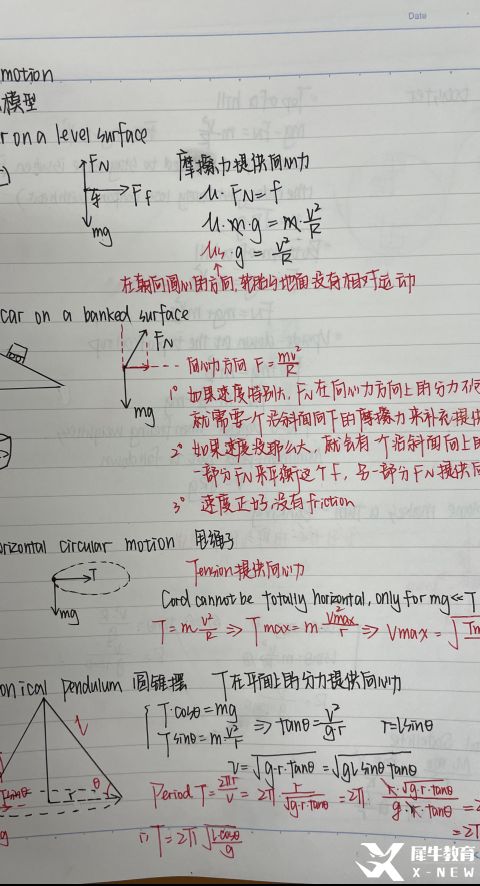 Date
motion
模型
r on a level surface
FN
Ff
mg
摩擦力提供向心力
μ·FN=f
μ·m·g=m·v²/R
μs·g=v²/R
在朝向圆心的方向,轮胎与地面没有相对运动
car on a banked surface
FN
mg
向心力方向 F=mv²/R
1° 如果速度特别大, FN在向心力方向上的分力不
就需要一个沿斜面向下的摩擦力来补充提供
2° 如果速度没那么大, 就会有一个沿斜面向上
一部分FN来平衡这个f, 另一部分FN提供向
3° 速度正好,没有friction
orizontal circular motion 甩绳子
T
mg
Tension提供向心力
Cord cannot be totally horizontal, only for mg≪T
T=m v²/R ⇒ Tmax=m·vmax²/r ⇒ Vmax=√Tm
onical pendulum 圆锥摆 T在平面上的分力提供向心力
l
θ
Tsinθ
T·cosθ=mg
Tsinθ=m·v²/r
⇒ tanθ=v²/g·r r=lsinθ
v=√g·r·tanθ=√gl sinθ tanθ
Period T=2πr/v=2π r/√gr·tanθ=2π r·√g·r·tanθ/g·r·tanθ=2
=2π
∴ T=2π√l·cosθ/g
犀牛教育
X-NEW